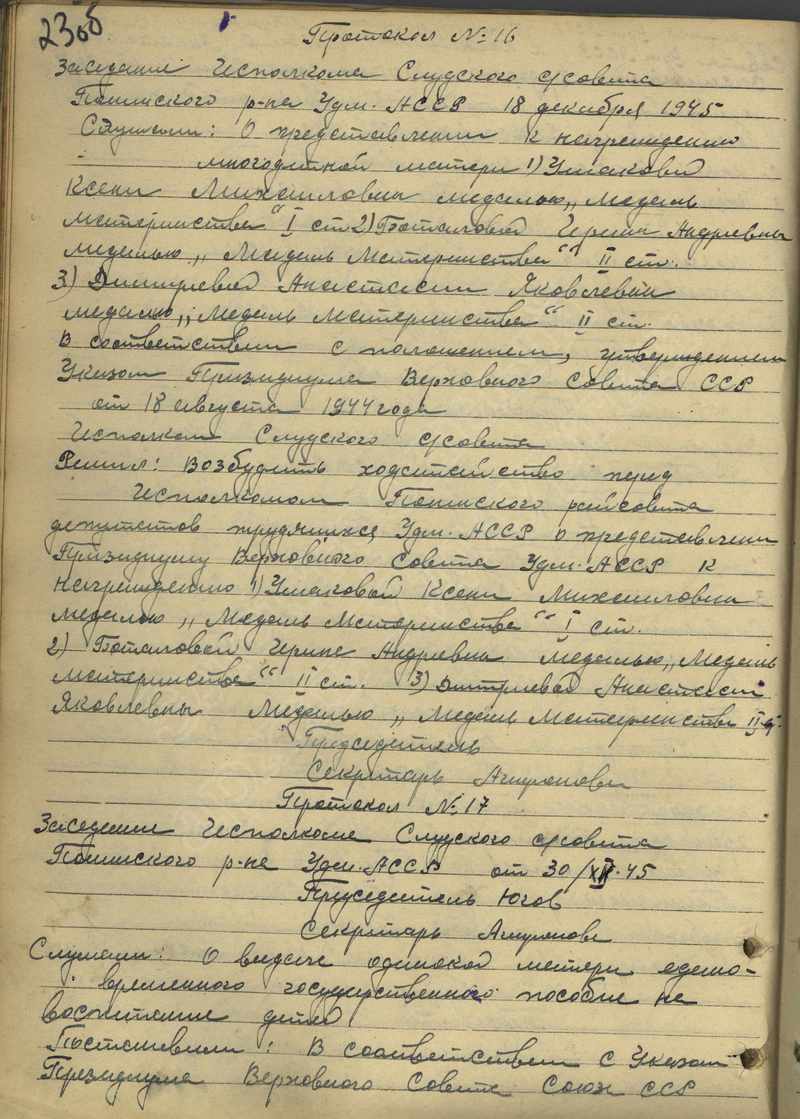 23об
Протокол № 16
Заседание Исполкома Слудского с/совета
р-на Удм. АССР 18 декабря 1945
Слушали: О представлении к награждению
многодетной матери 1) Ушаковой
Ксени Михаиловны медалью „Медаль
материнства“ I ст 2) Поталовой Ирини Андревны
медалью „Медаль Материнства“ II ст.
3) Дмитриевой Анастасии Яковлевны
медалью „Медаль материнства“ II ст.
В соответствии с положением, утвержденным
Указом Призидиума Верховного Совета ССР
от 18 августа 1944 года
Исполком Слудского с/совета
Решил: Возбудить ходатайство перед
Исполкомом райсовета
депутатов трудящихся Удм. АССР о представлении
Призидиуму Верховного Совета Удм. АССР к
награждению 1) Ушаковой Ксени Михаиловны
медалью „Медаль Материнства“ I ст.
2) Поталовой Ирине Андревны медалью „Медаль
материнства“ II ст. 3) Дмитриевой Анастасии
Яковлевны Медалью „Медаль Материнства II ст.
Председатель
Секритарь
Протокол № 17
Заседание Исполкома Слудского с/совета
р-на Удм. АССР от 30/XII-45
Придседатель Югов
Секритарь
Слушали: О выдаче одинокой матери едено-
временного государственного пособие на
воспитание детей
Постановили: В соответствии с Указом
Призидиума Верховного Совета Союз ССР